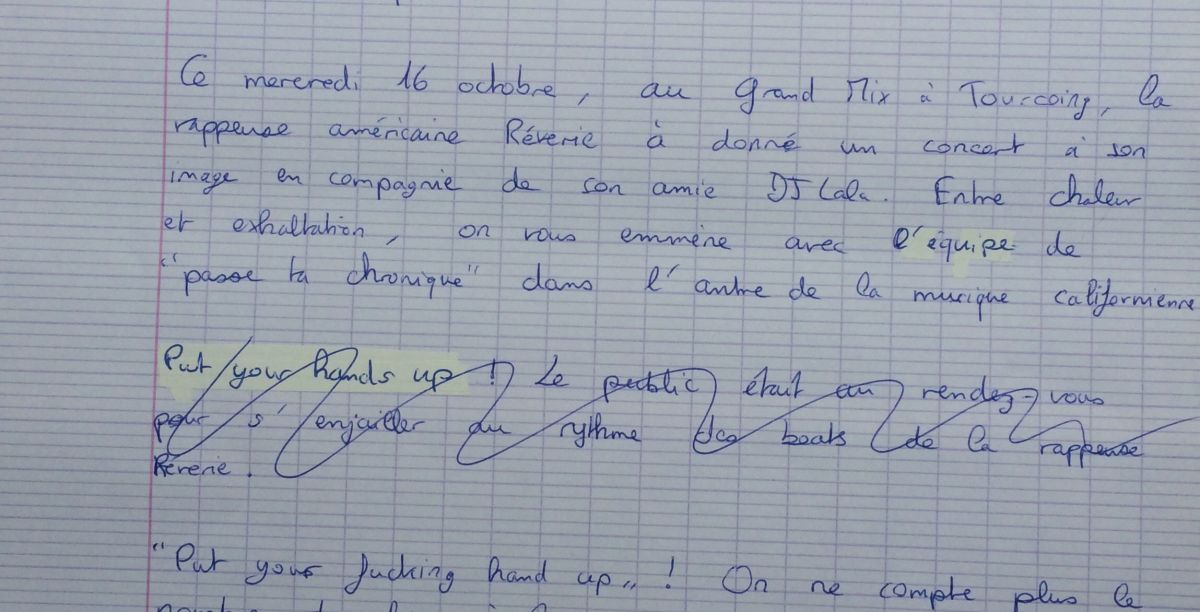 Ce mercredi 16 octobre, au Grand Mix à Tourcoing, la
rappeuse américaine Réverie à donné un concert à son
image en compagnie de son amie DJ Lala. Entre chaleur
et exhaltation, on vous emmène avec l'équipe de
"passe ta chronique" dans l'antre de la musique californienne
Put your hands up ! Le public était au rendez-vous
pour s'enjailler du rythme des beats de la rappeuse
Réverie.
"Put your fucking hand up" ! On ne compte plus le